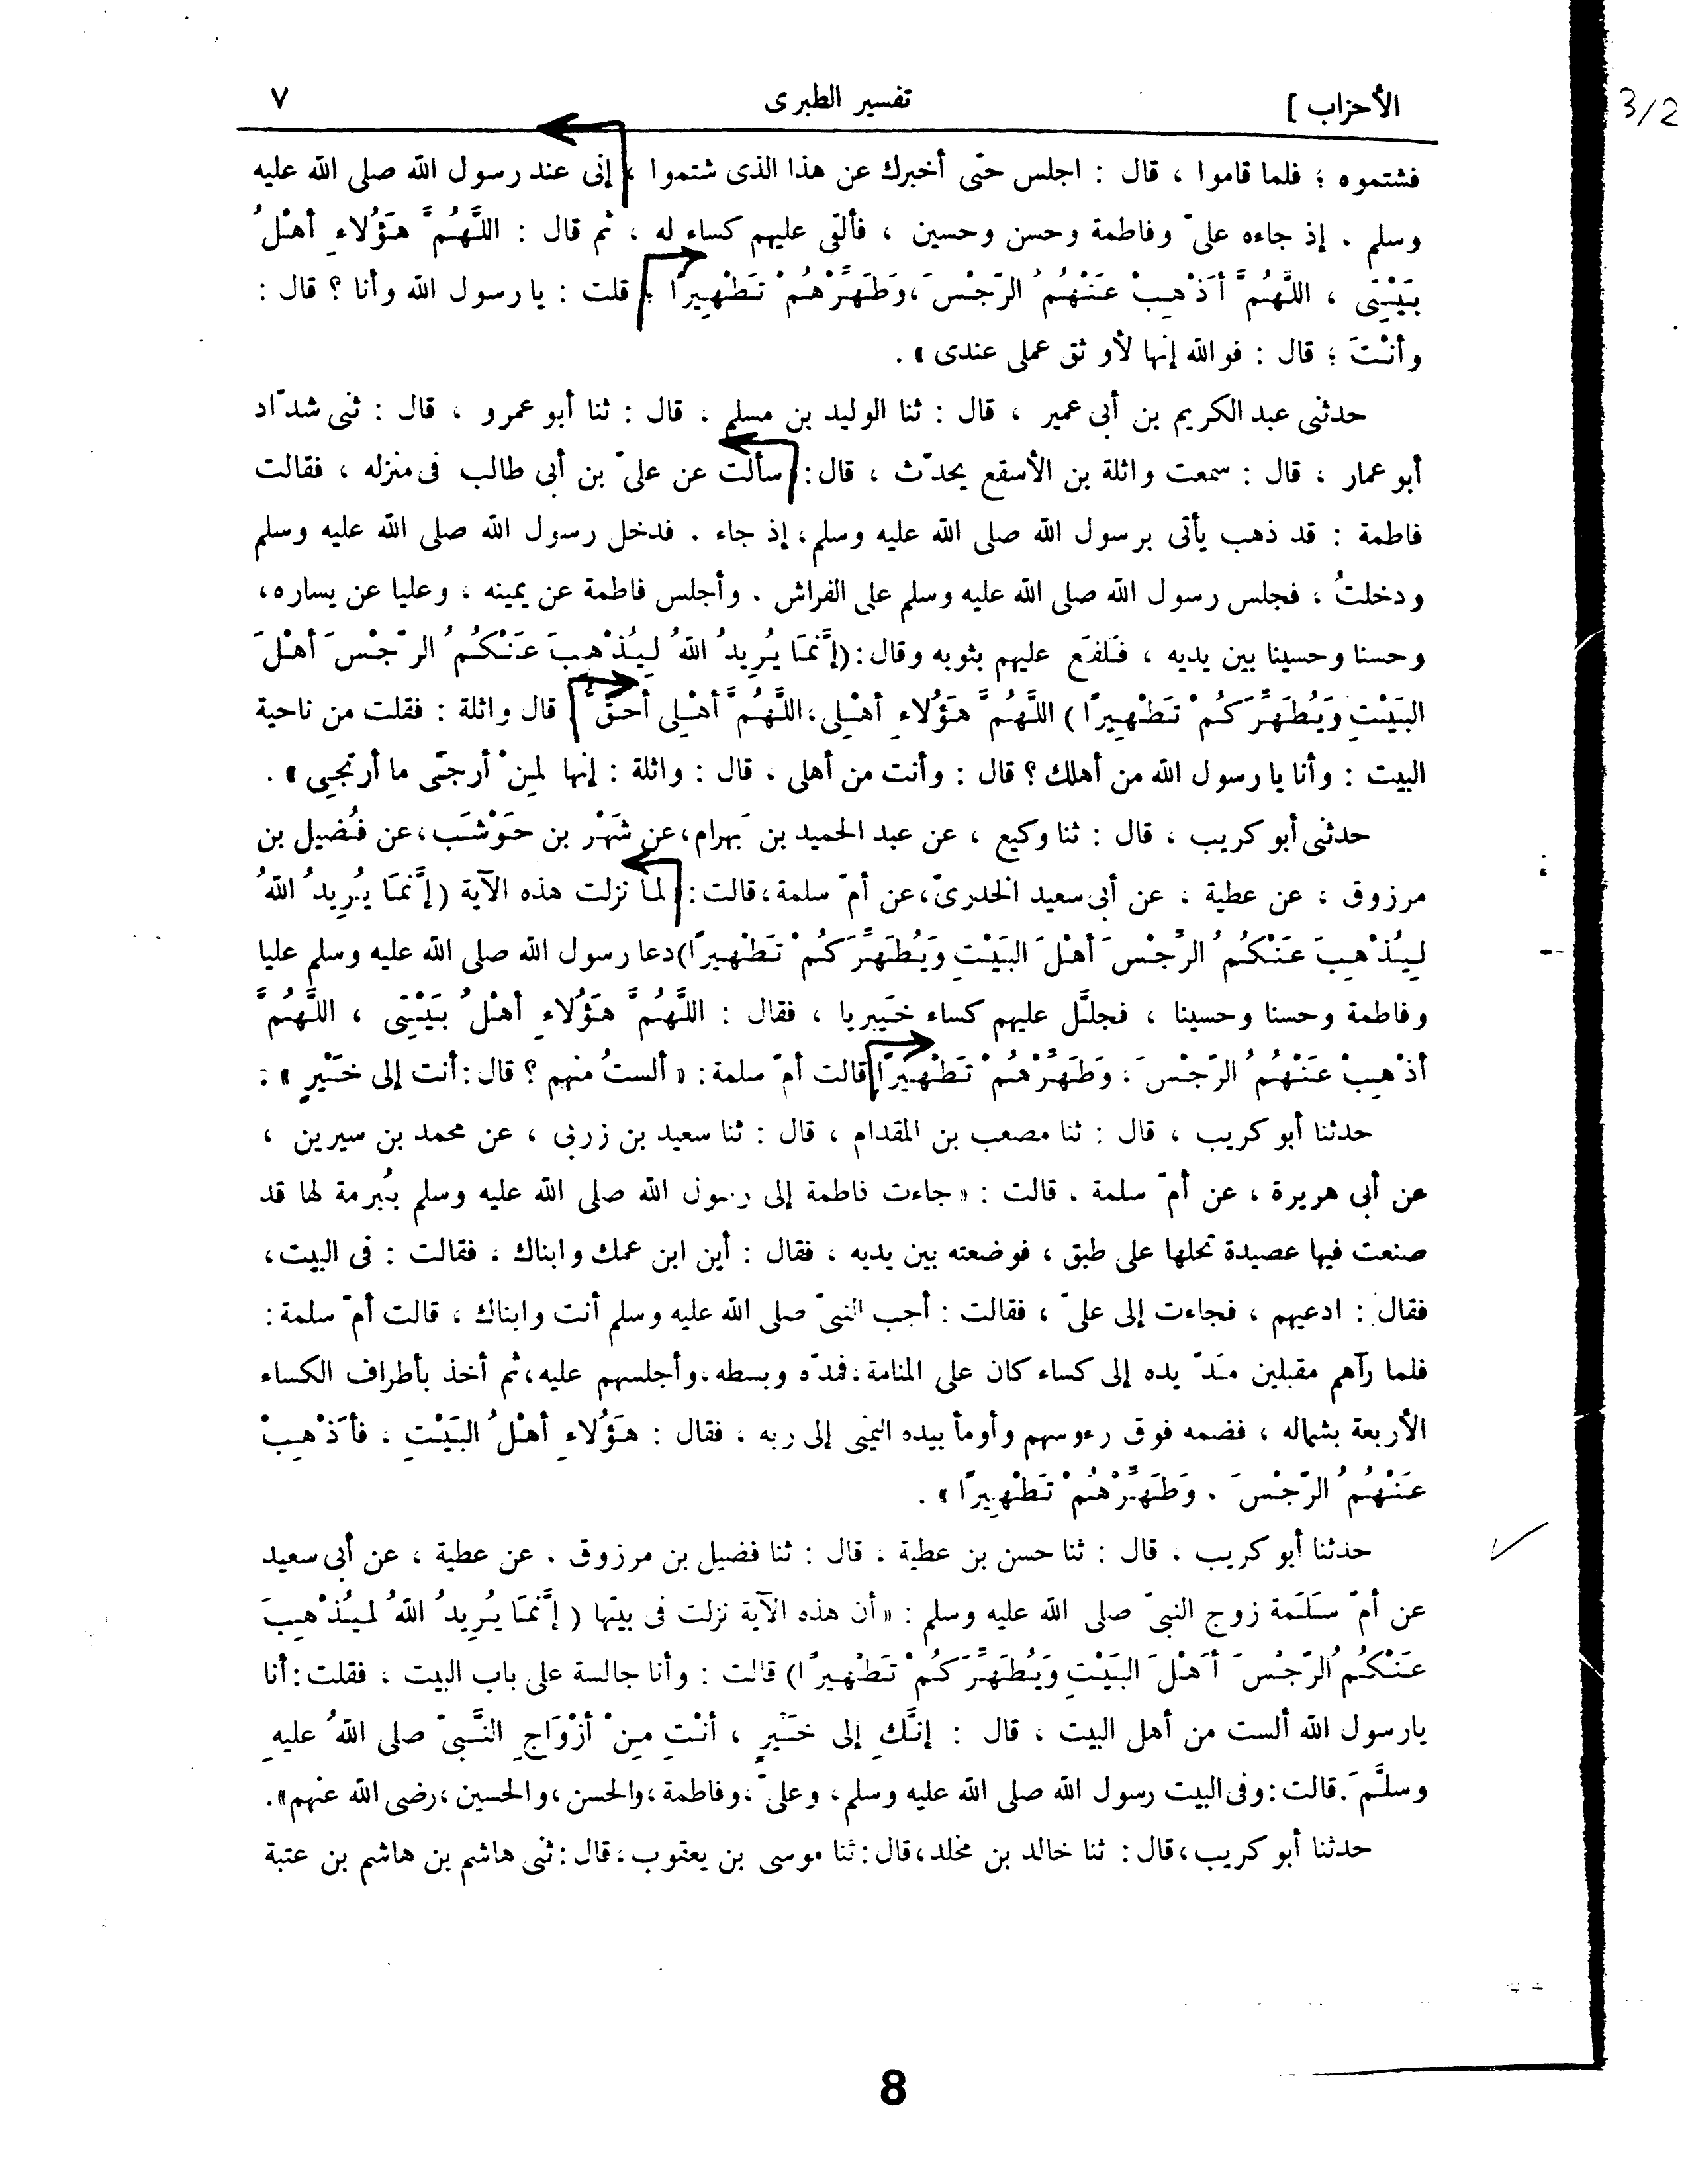 الأحزاب ] تفسير الطبرى ٧
3/2
فشتموه ؛ فلما قاموا ، قال : اجلس حتى أخبرك عن هذا الذى شتموا ، إنى عند رسول الله صلى الله عليه
وسلم . إذ جاءه علىّ وفاطمة وحسن وحسين ، فألقى عليهم كساء له ، ثم قال : اللَّهُمَّ هَؤُلاءِ أهْلُ
بَيْتِى ، اللَّهُمَّ أَذْهِبْ عَنْهُمُ الرّجْسَ ، وَطَهِّرْهُمْ تَطْهِيرًا ؛ قلت : يا رسول الله وأنا ؟ قال :
وأنْتَ ؛ قال : فوالله إنها لأوثق عملى عندى » .
حدثنى عبد الكريم بن أبى عمير ، قال : ثنا الوليد بن مسلم ، قال : ثنا أبو عمرو ، قال : ثنى شدّاد
أبو عمار ، قال : سمعت واثلة بن الأسقع يحدّث ، قال : سألت عن علىّ بن أبى طالب فى منزله ، فقالت
فاطمة : قد ذهب يأتى برسول الله صلى الله عليه وسلم ، إذ جاء . فدخل رسول الله صلى الله عليه وسلم
ودخلتُ ، فجلس رسول الله صلى الله عليه وسلم على الفراش . وأجلس فاطمة عن يمينه ، وعليا عن يساره ،
وحسنا وحسينا بين يديه ، فَلفَع عليهم بثوبه وقال : (إنَّمَا يُرِيدُ اللهُ لِيُذْهِبَ عَنْكُمُ الرّجْسَ أهْلَ
البَيْتِ وَيُطَهِّرَكُمْ تَطْهِيرًا) اللَّهُمَّ هَؤُلاءِ أهْلِى ، اللَّهُمَّ أهْلِى أحَقُّ ] قال واثلة : فقلت من ناحية
البيت : وأنا يا رسول الله من أهلك ؟ قال : وأنت من أهلى ، قال : واثلة : إنها لمِنْ أرجَى ما أرتجى » .
حدثنى أبو كريب ، قال : ثنا وكيع ، عن عبد الحميد بن بَهرام ، عن شَهْر بن حَوْشَب ، عن فُضيل بن
مرزوق ، عن عطية ، عن أبى سعيد الخدرىّ ، عن أمّ سلمة ، قالت : لما نزلت هذه الآية (إنَّمَا يُرِيدُ اللهُ
لِيُذْهِبَ عَنْكُمُ الرِّجْسَ أهْلَ البَيْتِ وَيُطَهِّرَكُمْ تَطْهِيرًا) دعا رسول الله صلى الله عليه وسلم عليا
وفاطمة وحسنا وحسينا ، فجلَّل عليهم كساء خَيبريا ، فقال : اللَّهُمَّ هَؤُلاءِ أهْلُ بَيْتِى ، اللَّهُمَّ
أذْهِبْ عَنْهُمُ الرّجْسَ ، وَطَهِّرْهُمْ تَطْهِيرًا قالت أمّ سلمة : « ألستُ منهم ؟ قال : أنت إلى خَيْرٍ » :
حدثنا أبو كريب ، قال : ثنا مصعب بن المقدام ، قال : ثنا سعيد بن زربى ، عن محمد بن سيرين ،
عن أبى هريرة ، عن أمّ سلمة . قالت : « جاءت فاطمة إلى رسول الله صلى الله عليه وسلم ببُرمة لها قد
صنعت فيها عصيدة تحلها على طبق ، فوضعته بين يديه ، فقال : أين ابن عمك وابناك ، فقالت : فى البيت ،
فقال : ادعيهم ، فجاءت إلى علىّ ، فقالت : أجب النبىّ صلى الله عليه وسلم أنت وابناك ، قالت أمّ سلمة :
فلما رآهم مقبلين مَدّ يده إلى كساء كان على المنامة ، فمدّه وبسطه ، وأجلسهم عليه ، ثم أخذ بأطراف الكساء
الأربعة بشماله ، فضمه فوق رءوسهم وأومأ بيده اليمنى إلى ربه ، فقال : هَؤُلاءِ أهْلُ البَيْتِ ، فأَذْهِبْ
عَنْهُمُ الرّجْسَ . وَطَهِّرْهُمْ تَطْهِيرًا » .
حدثنا أبو كريب ، قال : ثنا حسن بن عطية ، قال : ثنا فضيل بن مرزوق ، عن عطية ، عن أبى سعيد
عن أمّ سَلَمة زوج النبىّ صلى الله عليه وسلم : « أن هذه الآية نزلت فى بيتها ( إنَّمَا يُرِيدُ اللهُ لِيُذْهِبَ
عَنْكُمُ الرّجْسَ أهْلَ البَيْتِ وَيُطَهِّرَكُمْ تَطْهِيرًا) قالت : وأنا جالسة على باب البيت ، فقلت : أنا
يارسول الله ألست من أهل البيت ، قال : إنَّكِ إلى خَيْرٍ ، أنْتِ مِنْ أزْوَاجِ النَّبىّ صلى اللهُ عليهِ
وسلَّمَ . قالت : وفى البيت رسول الله صلى الله عليه وسلم ، وعلىّ ، وفاطمة ، والحسن ، والحسين ، رضى الله عنهم» .
حدثنا أبو كريب ، قال : ثنا خالد بن مخلد ، قال : ثنا موسى بن يعقوب ، قال : ثنى هاشم بن هاشم بن عتبة
8